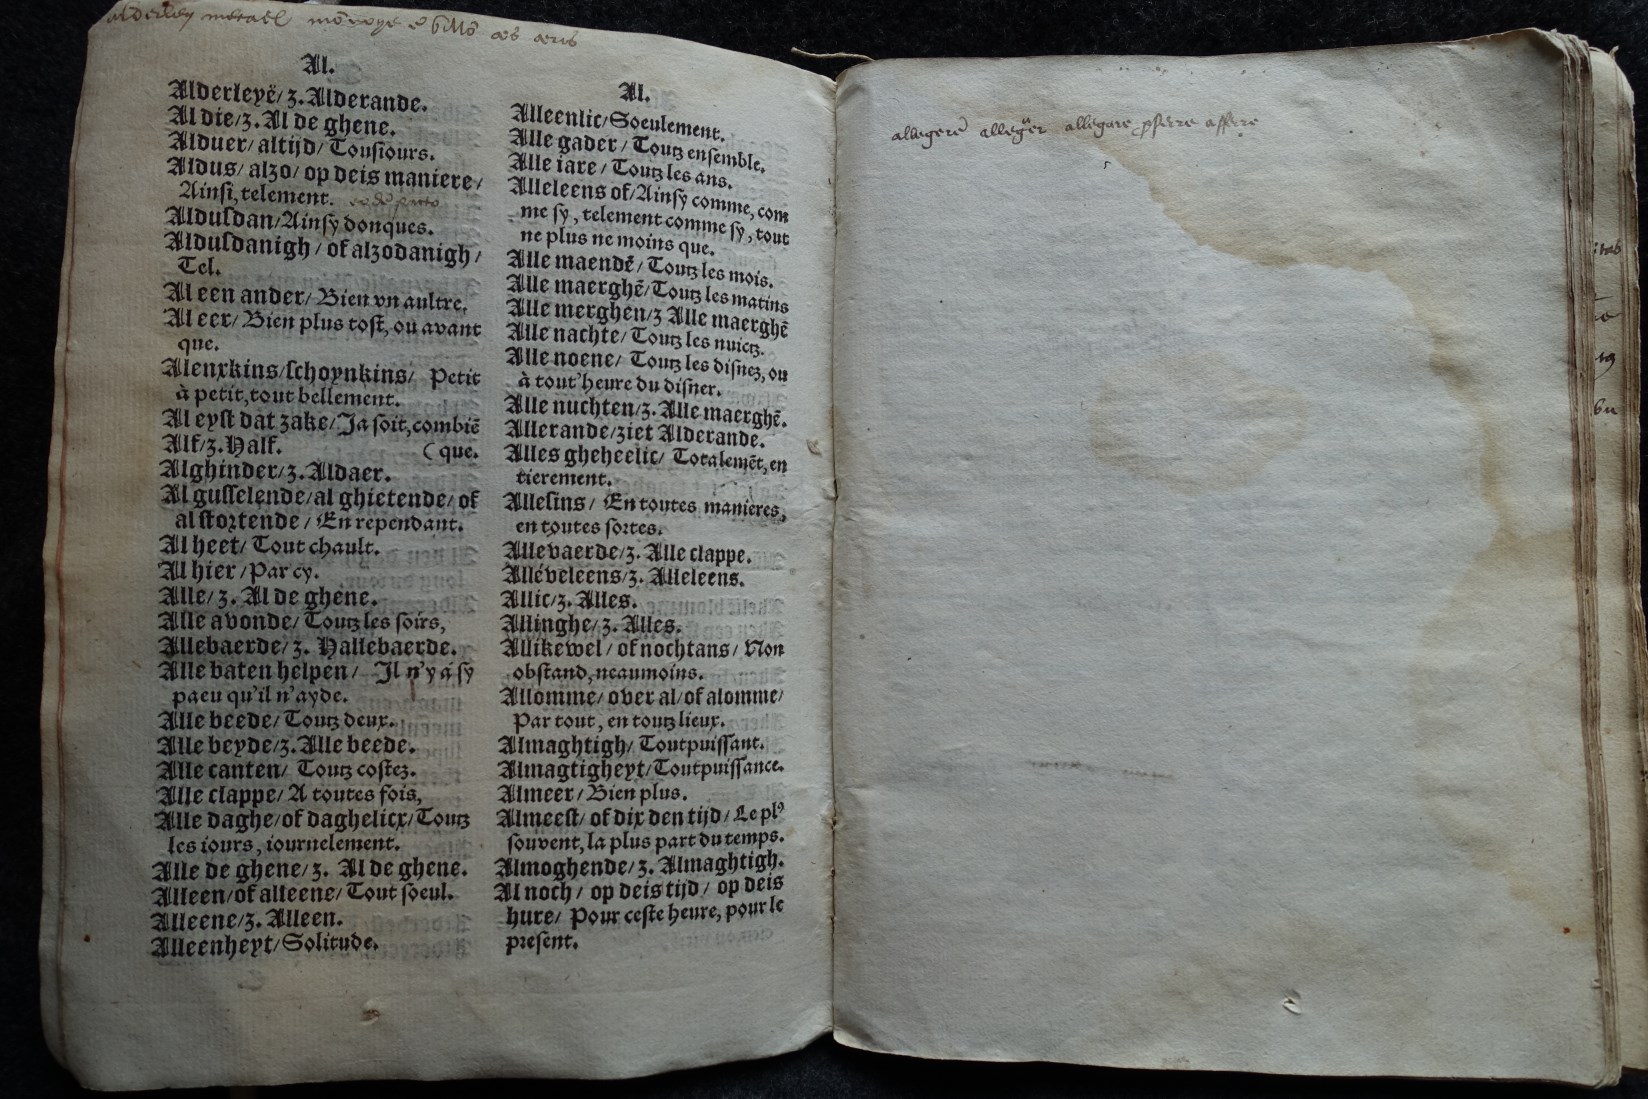 alderley metael monoye e
aes aeris
Al.
Alderleyë/ z. Alderande.
Al die/ z. Al de ghene.
Alduer/ altijd/ Tousiours.
Aldus/ alzo/ op deis maniere/
Ainsi, telement.
Aldusdan/ Ainsy donques.
Aldusdanigh/ of alzodanigh/
Tel.
Al een ander/ Bien vn aultre.
Al eer/ Bien plus tost, ou avant
que.
Alenxkins/ schoynkins/ Petit
à petit, tout bellement.
Al eyst dat zake/ Ja soit, combiē
Alf/ z. Half. (que.
Alghinder/ z. Aldaer.
Al gusselende/ al ghietende/ of
al stortende/ En rependant.
Al heet/ Tout chault.
Al hier/ Par cy.
Alle/ z. Al de ghene.
Alle avonde/ Toutz les soirs,
Allebaerde/ z. Hallebaerde.
Alle baten helpen/ Il n'y a sy
paeu qu'il n'ayde.
Alle beede/ Toutz deux.
Alle beyde/ z. Alle beede.
Alle canten/ Toutz costez.
Alle clappe/ A toutes fois,
Alle daghe/ of daghelicx/ Toutz
les iours, iournelement.
Alle de ghene/ z. Al de ghene.
Alleen/ of alleene/ Tout soeul.
Alleene/ z. Alleen.
Alleenheyt/ Solitude.
Al.
Alleenlic/ Soeulement.
Alle gader/ Toutz ensemble.
Alle iare/ Toutz les ans.
Alleleens of/ Ainsy comme, com
me sy, telement comme sy, tout
ne plus ne moins que.
Alle maendē/ Toutz les mois.
Alle maerghē/ Toutz les matins
Alle merghen/ z Alle maerghē
Alle nachte/ Toutz les nuictz.
Alle noene/ Toutz les disnez, ou
à tout'heure du disner.
Alle nuchten/ z. Alle maerghē.
Allerande/ ziet Alderande.
Alles gheheelic/ Totalemēt, en
tierement.
Allesins/ En toutes manieres,
en toutes sortes.
Allevaerde/ z. Alle clappe.
Alléveleens/ z. Alleleens.
Allic/ z. Alles.
Allinghe/ z. Alles.
Allikewel/ of nochtans/ Non
obstand, neaumoins.
Allomme/ over al/ of alomme/
Par tout, en toutz lieux.
Almaghtigh/ Toutpuissant.
Almagtigheyt/ Toutpuissance.
Almeer/ Bien plus.
Almeest/ of dix den tijd/ Le plꝰ
souvent, la plus part du temps.
Almoghende/ z. Almaghtigh.
Al noch/ op deis tijd/ op deis
hure/ Pour ceste heure, pour le
present.
allegere alleguer allegare pferre afferre